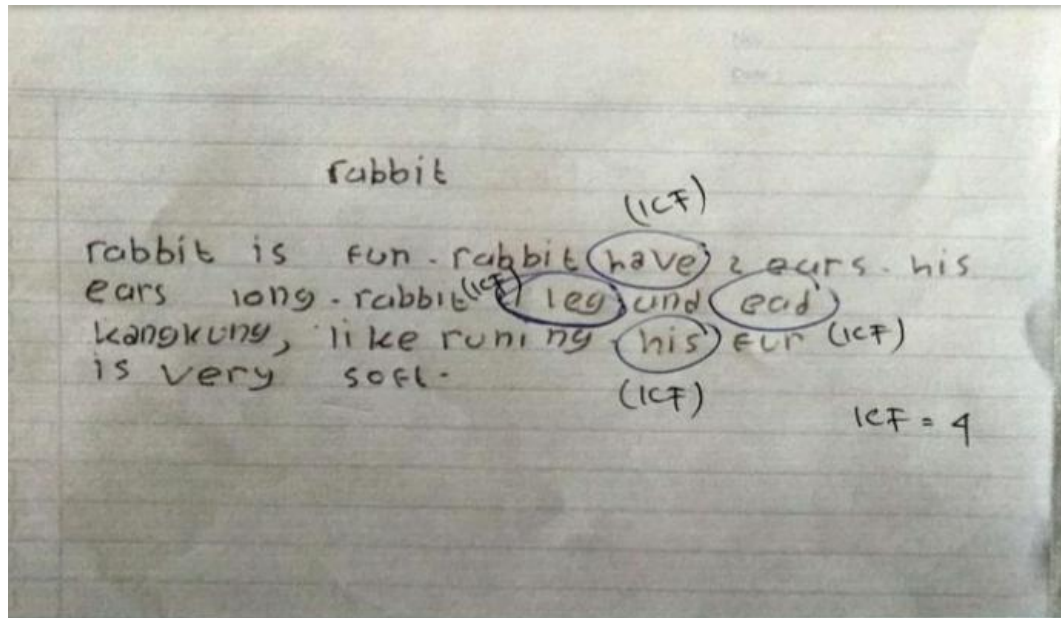 No
Date :
rabbit
(ICF)
rabbit is fun. rabbit have 2 ears. his
ears long. rabbit (ICF) leg and ead
kangkung, like runing. his fur (ICF)
is very soft.
(ICF)
ICF = 4